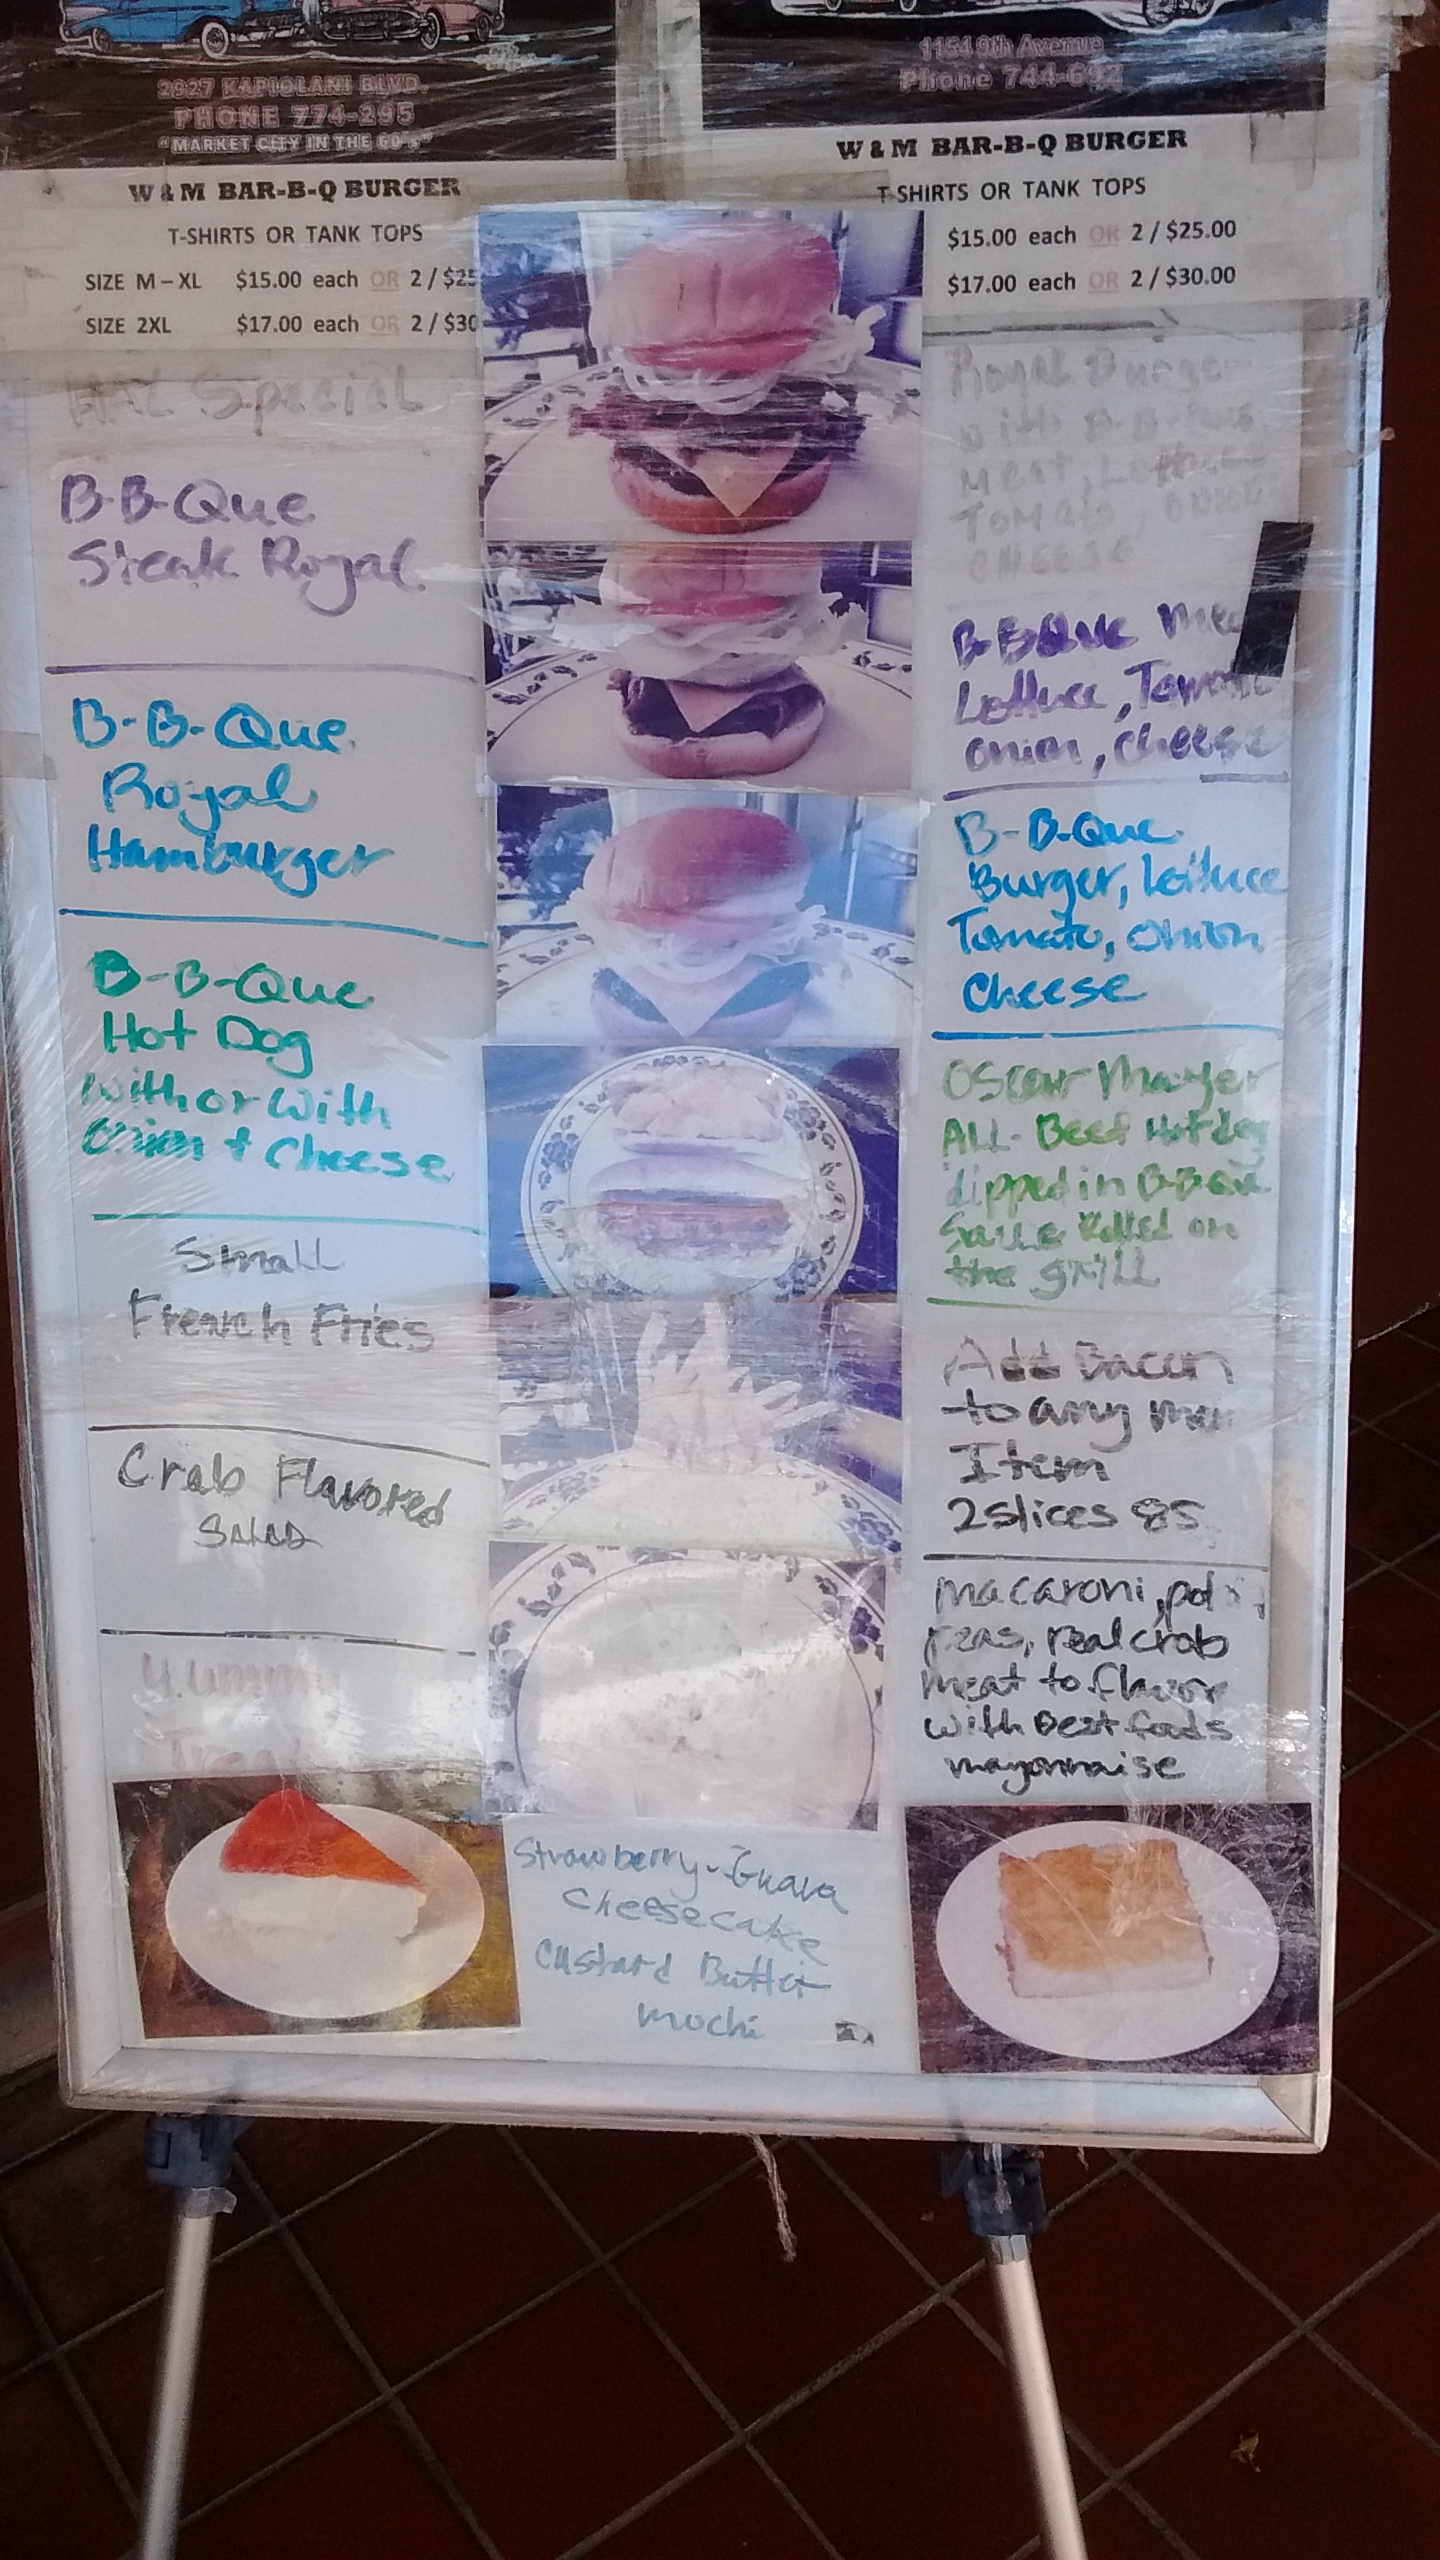 2927 KAPIOLANI BLVD.
PHONE 774-295
"MARKET CITY IN THE 60's"
W & M BAR-B-Q BURGER
T-SHIRTS OR TANK TOPS
SIZE M – XL $15.00 each OR 2 / $25
SIZE 2XL $17.00 each OR 2 / $30
1154 9th Avenue
Phone 744-692
W & M BAR-B-Q BURGER
T-SHIRTS OR TANK TOPS
$15.00 each OR 2 / $25.00
$17.00 each OR 2 / $30.00
Special
Royal Burger
with B-B-Que
Meat, Lettuce
Tomato, onion
CHEESE
B-B-Que
Steak Royal
B-B-Que
Lettuce, Tomato
onion, cheese
B-B-Que
Royal
Hamburger
B-B-Que
Burger, Lettuce
Tomato, Onion
Cheese
B-B-Que
Hot Dog
with or with
Onion + Cheese
Oscar Mayer
ALL-Beef Hotdog
dipped in B-B-Que
Sauce Rolled on
the grill
Small
French Fries
Add Bacon
to any
Item
2 slices 85
Crab Flavored
SALAD
Macaroni,
peas, real crab
meat to flavor
with Best foods
mayonnaise
Yummy
Strawberry-Guava
Cheesecake
Custard Butter
mochi